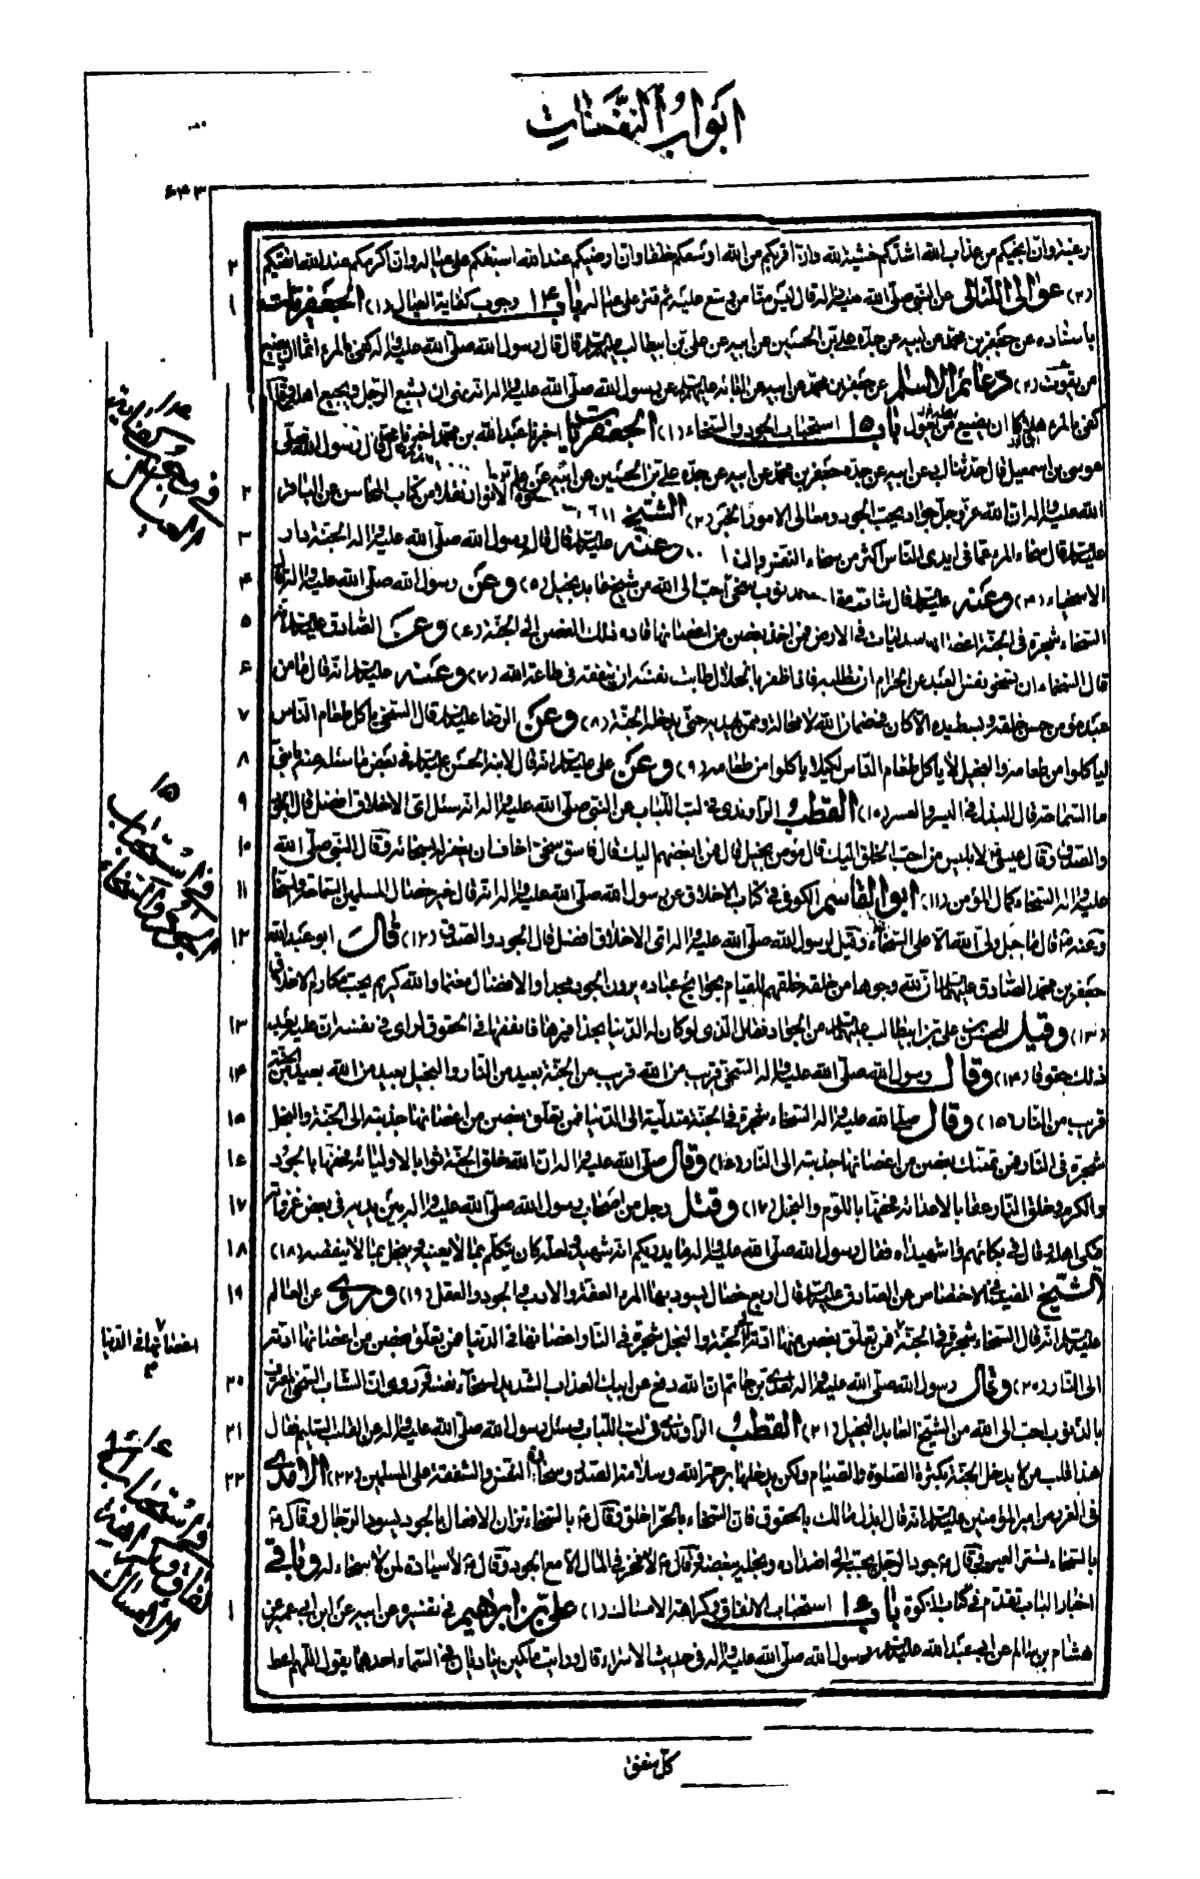 ابواب النفقات
۶۴۳
رغبة وان انجيكم من عذاب الله اشدكم خشية لله وان اقربكم من الله اوسعكم خلقا وان ارضيكم عند الله اسبغكم على عياله وان اكرمكم عند الله اتقيكم ۲
(۲) عوالى اللئالى عن النبى صلّى الله عليه واله قال ليس منا من وسع عليه ثم قتر على عياله باب ۱۴ وجوب كفاية العيال (۱) الجعفريات ۱
باسناده عن جعفر بن محمد عن ابيه عن جده على بن الحسين عن ابيه عن على بن ابيطالب عليهم السلام قال قال رسول الله صلّى الله عليه واله كفى بالمرء اثما ان يضيع
من يقوت (۲) دعائم الاسلام عن جعفر بن محمد عن ابيه عن ابائه عليهم السلام عن رسول الله صلّى الله عليه واله انه نهى ان يشبع الرجل ويجيع اهله وقال
كفى بالمرء هلاكا ان يضيع من يعول باب ۱۵ استحباب الجود والسخاء (۱) الجعفريات اخبرنا عبد الله بن محمد اخبرنا محمد قال رسول الله صلّى
موسى بن اسمعيل قال حدثنا ابى عن ابيه عن جده جعفر بن محمد عن ابيه عن جده على بن الحسين عن ابيه عن على
الله عليه واله ان الله عز وجل جواد يحب الجود ومعالى الامور الخبر (۲) الشيخ الانوار نقلا من كتاب المحاسن عن الباقر ۲
عليه السلام قال سخاء المرء عما فى ايدى الناس اكثر من سخاء النفس والبذل وعنه عليه السلام قال قال رسول الله صلّى الله عليه واله الجنة دار ۳
الاسخياء (۴) وعنه عليه السلام قال شاب ذنوب سخى احب الى الله من شيخ عابد بخيل (۵) وعن رسول الله صلّى الله عليه واله قال ۴
السخاء شجرة فى الجنة اغصانها متدليات فى الارض فمن اخذ بغصن من اغصانها قاده ذلك الغصن الى الجنة (۶) وعن الصادق عليه السلام ۵
قال السخاء ان تسخى نفس العبد عن الحرام ان تطلبه فاذا ظفر بالحلال طابت نفسه ان ينفقه فى طاعة الله (۷) وعنه عليه السلام انه قال ما من ۶
عبد مؤمن حسن خلقه وبسط يده الا كان فى ضمان الله لا محالة وممن يهديه حتى يدخله الجنة (۸) وعن الرضا عليه السلام قال السخى ياكل طعام الناس ۷
لياكلوا من طعامه والبخيل لا ياكل طعام الناس لكيلا ياكلوا من طعامه (۹) وعن على عليه السلام انه قال لابنه الحسن عليه السلام فى بعض ما سئله عنه يا بنى ۸
ما السماحة قال البذل فى اليسر والعسر (۱۰) القطب الراوندى فى لب اللباب عن النبى صلّى الله عليه واله انه سئل اى الاخلاق افضل قال الجود ۹
والصدق وقال عيسى لابليس من احب الخلق اليك قال مؤمن بخيل قال فمن ابغضهم اليك قال فاسق سخى اخاف ان يغفر له بسخائه وقال النبى صلّى الله ۱۰
عليه واله السخاء كمال المؤمن (۱۱) ابو القاسم الكوفى فى كتاب الاخلاق عن رسول الله صلّى الله عليه واله انه قال خير خصال المسلمين السماحة والسخاء ۱۱
وعنه قال ما جبل ولى الله الا على السخاء وقيل لرسول الله صلّى الله عليه واله اى الاخلاق افضل قال الجود والصدق (۱۲) قال ابو عبد الله ۱۲
جعفر بن محمد الصادق عليهما السلام ان لله وجوها من خلقه خلقهم للقيام بحوائج عباده يرون الجود مجدا والافضال مغنما والله كريم يحب مكارم الاخلاق
(۱۳) وقيل للحسين بن على بن ابيطالب عليهم السلام من الجواد فقال الذى لو كان له الدنيا بحذافيرها فانفقها فى الحقوق لراى فى نفسه ان عليه بعد ۱۳
ذلك حقوقا (۱۴) وقال رسول الله صلّى الله عليه واله السخى قريب من الله قريب من الجنة بعيد من النار والبخيل بعيد من الله بعيد من الجنة ۱۴
قريب من النار (۱۵) وقال صلّى الله عليه واله السخاء شجرة فى الجنة متدلية الى الدنيا فمن تعلق بغصن من اغصانها جذبته الى الجنة والبخل ۱۵
شجرة فى النار فمن تمسك بغصن من اغصانها جذبته الى النار (۱۶) وقال صلّى الله عليه واله ان الله خلق الجنة ثوابا لاوليائه فحفها بالجود ۱۶
والكرم وخلق النار عقابا لاعدائه فحفها باللؤم والبخل (۱۷) وقتل رجل من اصحاب رسول الله صلّى الله عليه واله بين يديه فى بعض غزواته ۱۷
فبكى اهله وقال فى بكائهم وا شهيداه فقال رسول الله صلّى الله عليه واله ما يدريكم انه شهيد ولعله كان يتكلم بما لا يعنيه ويبخل بما لا ينقصه (۱۸) ۱۸
الشيخ المفيد فى الاختصاص عن الصادق عليه السلام قال اربع خصال يسود بها المرء العفة والادب والجود والعقل (۱۹) وروى عن العالم ۱۹
عليه السلام انه قال السخاء شجرة فى الجنة فمن تعلق بغصن منها ادته الى الجنة والبخل شجرة فى النار واغصانها فى الدنيا فمن تعلق بغصن من اغصانها ادته
الى النار (۲۰) وقال رسول الله صلّى الله عليه واله لعدى بن حاتم ان الله دفع عن ابيك العذاب الشديد لسخاء نفسه وروى ان الشاب السخى المعترف ۲۰
بالذنوب احب الى الله من الشيخ العابد البخيل (۲۱) القطب الراوندى فى لب اللباب وسئل رسول الله صلّى الله عليه واله عن القلب السليم فقال ۲۱
هذا قلب من لا يدخل الجنة بكثرة الصلوة والصيام ولكن يدخلها برحمة الله وسلامة الصدر وسخاوة النفس والشفقة على المسلمين (۲۲) الامدى ۲۲
فى الغرر عن امير المؤمنين عليه السلام انه قال ابذل مالك بالحقوق فان السخاء بالحر اخلق وقال ع بالسخاء تزان الافعال بالجود يسود الرجال وقال ع
بالسخاء تستر العيوب وقال ع جود الرجل يحببه الى اضداده وبخله يبغضه وقال ع لا فخر فى المال الا مع الجود وقال ع لا سيادة لمن لا سخاء له وباقى
اخبار الباب تقدم فى كتاب الزكوة باب ۱۶ استحباب الانفاق وكراهة الامساك (۱) على بن ابراهيم فى تفسيره عن ابيه عن ابن ابى عمير عن ۱
هشام بن سالم عن ابى عبد الله عليه السلام رسول الله صلّى الله عليه واله فى حديث الاسراء قال ورايت ملكين يناديان فى السماء احدهما يقول اللهم اعط
كل منفق
۱۴
فى وجوب كفاية
العيال
۱۵
فى استحباب
الجود والسخاء
اغصانها فى الدنيا
۱۶
فى استحباب
انفاق وكراهة
الامساك